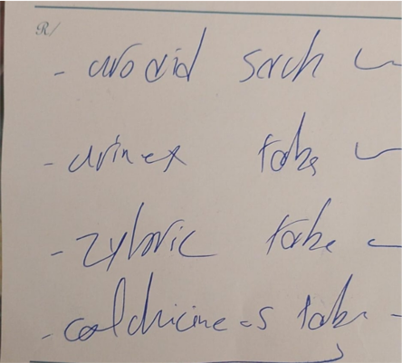 R/
- uroacid sach
- urinex tabs
- zyloric tabs
- colchicine-s tabs